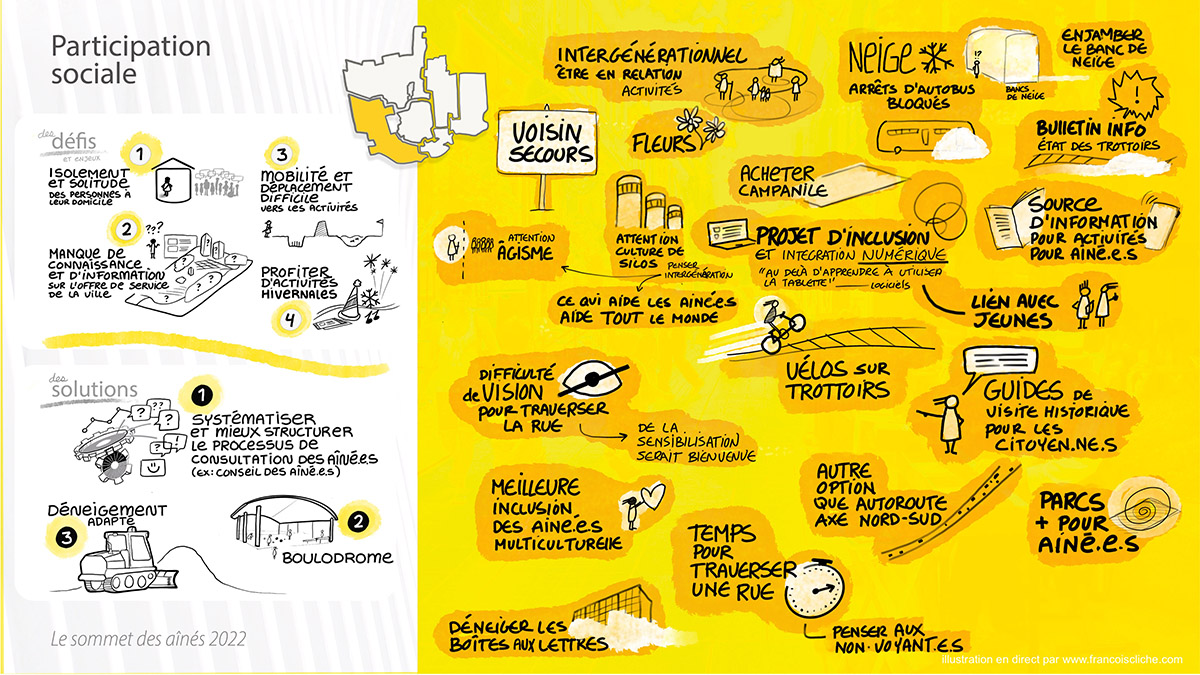 Participation
sociale
des
défis
ET ENJEUX
1
ISOLEMENT
ET SOLITUDE
DES PERSONNES À
LEUR DOMICILE
2
???
MANQUE DE
CONNAISSANCE
ET D'INFORMATION
SUR L'OFFRE DE SERVICE
DE LA VILLE
3
MOBILITÉ ET
DÉPLACEMENT
DIFFICILE
VERS LES ACTIVITÉS
PROFITER
D'ACTIVITÉS
HIVERNALES
4
des
solutions
1
SYSTÉMATISER
ET MIEUX STRUCTURER
LE PROCESSUS DE
CONSULTATION DES AÎNÉ.E.S
(EX: CONSEIL DES AÎNÉ.E.S)
2
BOULODROME
DÉNEIGEMENT
ADAPTÉ
3
Le sommet des aînés 2022
INTERGÉNÉRATIONNEL
ÊTRE EN RELATION
ACTIVITÉS
VOISIN
SECOURS
FLEURS
NEIGE
ARRÊTS D'AUTOBUS
BLOQUÉS
!?
BANCS
DE NEIGE
ENJAMBER
LE BANC DE
NEIGE
!
BULLETIN INFO
ÉTAT DES TROTTOIRS
ACHETER
CAMPANILE
ATTENTION
ÂGISME
ATTENTION
CULTURE DE
SILOS
PENSER
INTERGÉNÉRATION
CE QUI AIDE LES AINÉ.E.S
AIDE TOUT LE MONDE
PROJET D'INCLUSION
ET INTÉGRATION NUMÉRIQUE
"AU DELÀ D'APPRENDRE À UTILISER
LA TABLETTE"
LOGICIELS
SOURCE
D'INFORMATION
POUR ACTIVITÉS
POUR AINÉ.E.S
LIEN AVEC
JEUNES
DIFFICULTÉ
de VISION
POUR TRAVERSER
LA RUE
DE LA
SENSIBILISATION
SERAIT BIENVENUE
VÉLOS SUR
TROTTOIRS
GUIDES DE
VISITE HISTORIQUE
POUR LES
CITOYEN.NE.S
MEILLEURE
INCLUSION
DES AINÉ.E.S
MULTICULTURELLE
TEMPS
POUR
TRAVERSER
UNE RUE
PENSER AUX
NON-VOYANT.E.S
AUTRE
OPTION
QUE AUTOROUTE
AXE NORD-SUD
PARCS
+ POUR
AINÉ.E.S
DÉNEIGER LES
BOÎTES AUX LETTRES
Illustration en direct par www.francoiscliche.com